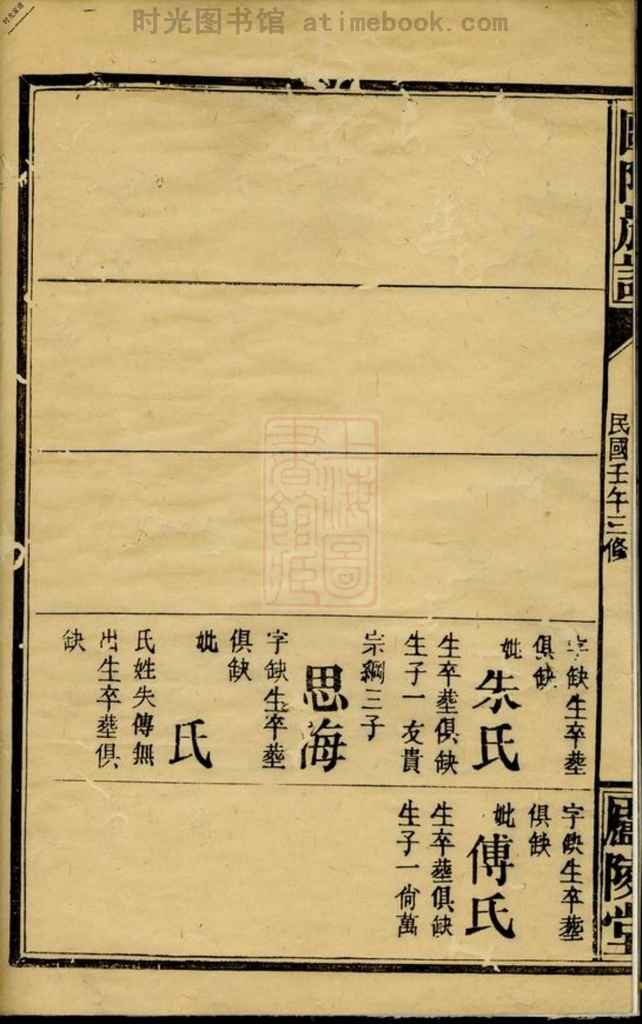 时光图书馆 atimebook.com
民國壬午三修
廬陵堂
字缺生卒塟
俱缺
妣
朱氏
生卒塟俱缺
生子一 友貴
宗綱三子
思海
字缺生卒塟
俱缺
妣
氏
氏姓失傳無
出生卒塟俱
缺
字缺生卒塟
俱缺
妣
傅氏
生卒塟俱缺
生子一尙萬
上海圖
書館藏